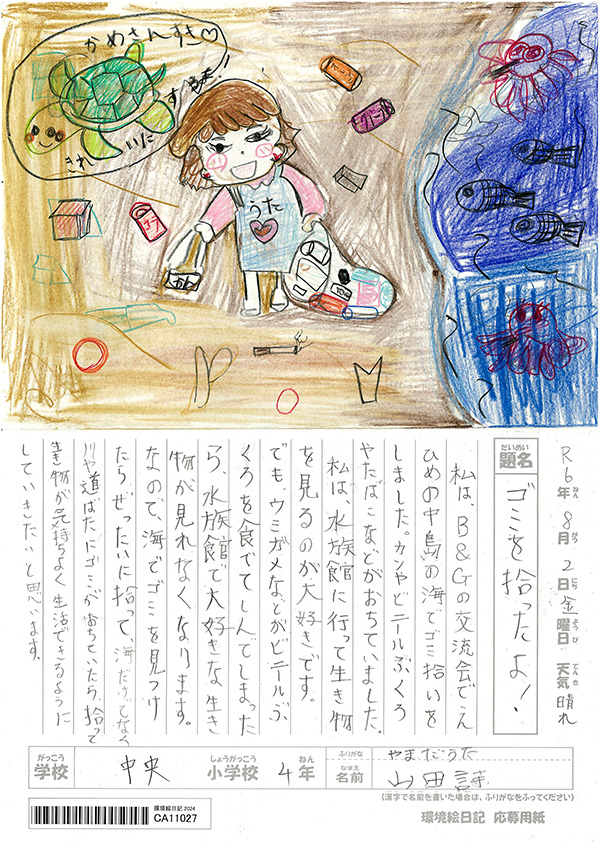 かめさんすき♡
きれいにするぞ!
うた
R6年 8月 2日 金曜日 天気 晴れ
ねん がつ にち ようび てんき
だいめい
題名
ゴミを拾ったよ!
私は、B&Gの交流会でえ
ひめの中島の海でゴミ拾いを
しました。カンやビニールぶくろ
やたばこなどがおちていました。
私は、水族館に行って生き物
を見るのが大好きです。
でも、ウミガメなどがビニールぶ
くろを食べてしんでしまった
ら、水族館で大好きな生き
物が見れなくなります。
なので、海でゴミを見つけ
たらぜったいに拾って、海だけでなく
川や道ばたにゴミがおちていたら、拾って
生き物が元気持ちよく生活できるように
していきたいと思います。
がっこう
学校
中央
しょうがっこう
小学校
4
ねん
年
ふりがな
やまだうた
なまえ
名前
山田詩
(漢字で名前を書いた場合は、ふりがなをふってください)
環境絵日記2024
CA11027
環境絵日記 応募用紙